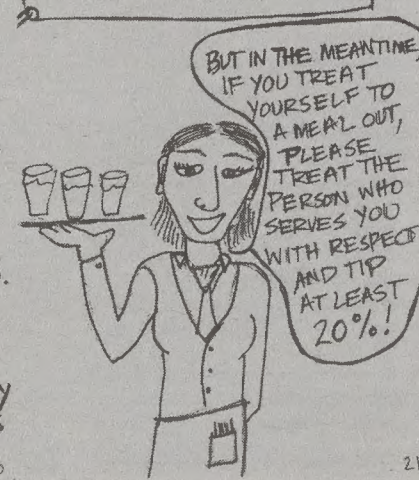 BUT IN THE MEANTIME,
IF YOU TREAT
YOURSELF TO
A MEAL OUT,
PLEASE
TREAT THE
PERSON WHO
SERVES YOU
WITH RESPECT
AND TIP
AT LEAST
20%!